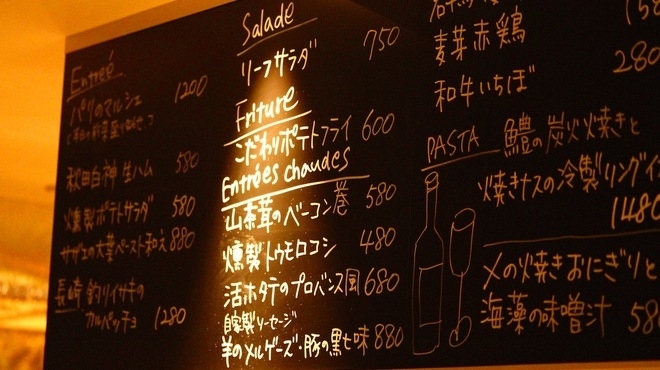 Entrée
パリのマルシェ 1200
秋田白神生ハム 580
燻製ポテトサラダ 580
サザエの大葉ペースト和え 880
長崎 釣りイサキの
カルパッチョ 1280
Salade
リーフサラダ 750
Friture
こだわりポテトフライ 600
Entrées chaudes
山茶茸のベーコン巻 580
燻製トウモロコシ 480
活ホタテのプロバンス風 680
自家製ソーセージ
羊のメルゲーズ・豚の黒七味 880
麦芽赤鶏
280
和牛いちぼ
PASTA 鱧の炭火焼きと
焼きナスの冷製リングイ
1480
〆の焼きおにぎりと
海藻の味噌汁 58